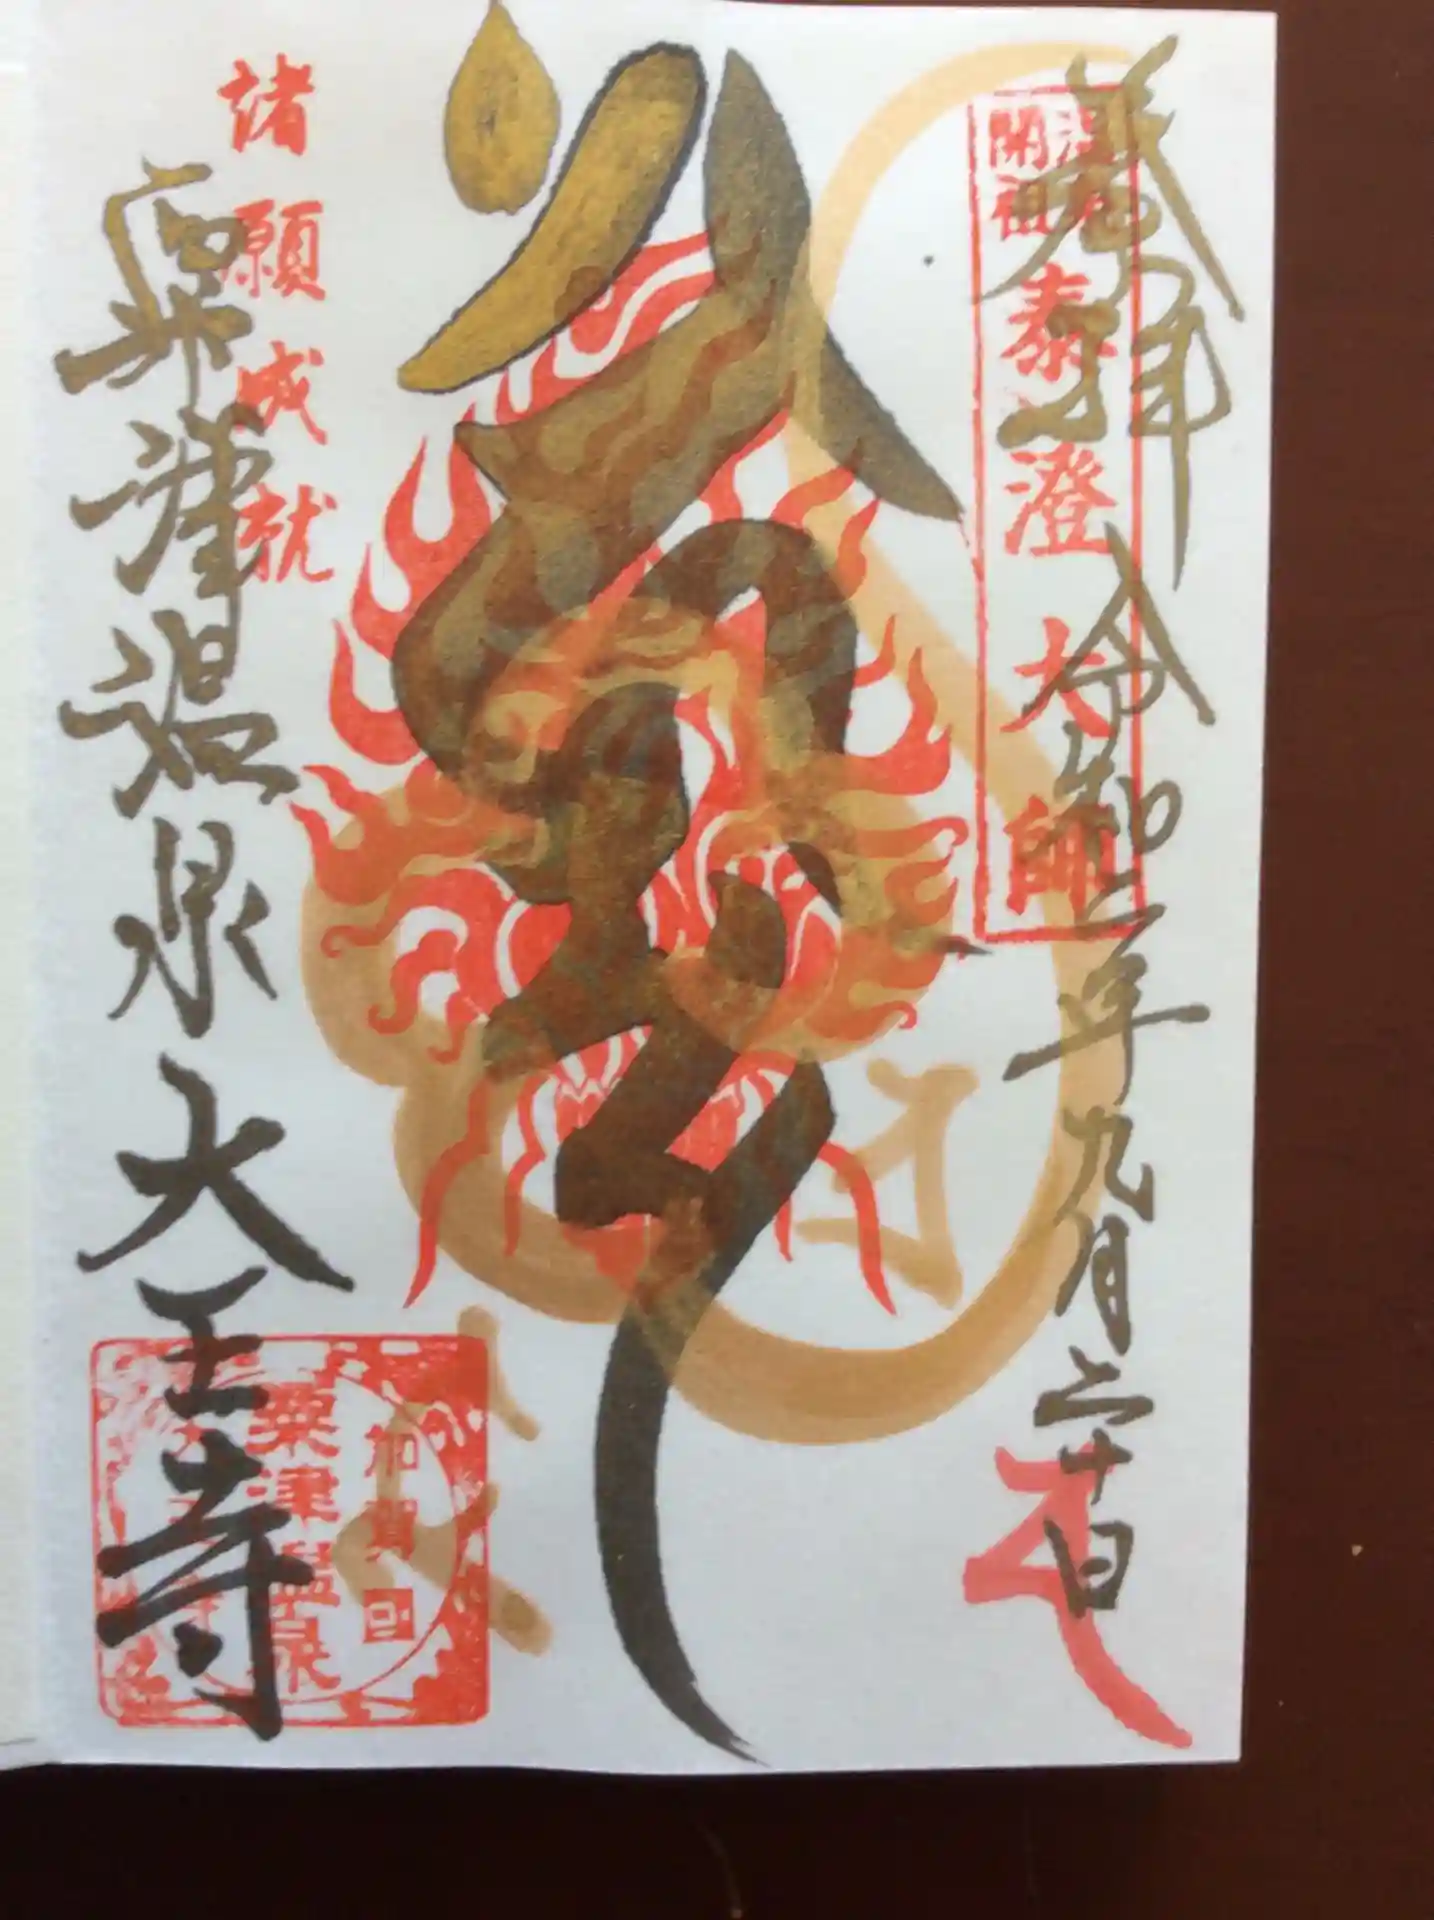 奉拝
令和二年九月二十日
開祖
泰澄大師
諸願成就
粟津温泉
大王寺
加賀国
粟津温泉